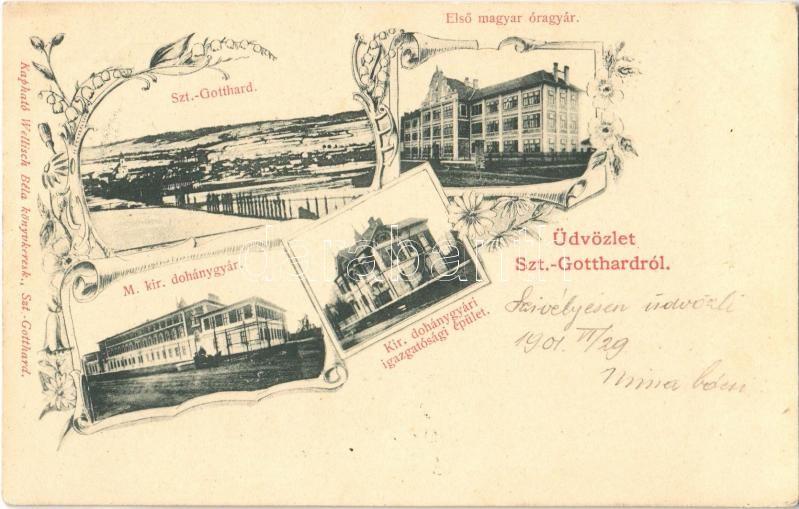 Első magyar óragyár.
Szt.-Gotthard.
M. kir. dohánygyár.
Kir. dohánygyári
igazgatósági épület.
Üdvözlet
Szt.-Gotthardról.
Szivélyesen üdvözli
1901. VI/29
Kapható Wellisch Béla könyvkeresk., Szt.-Gotthard.